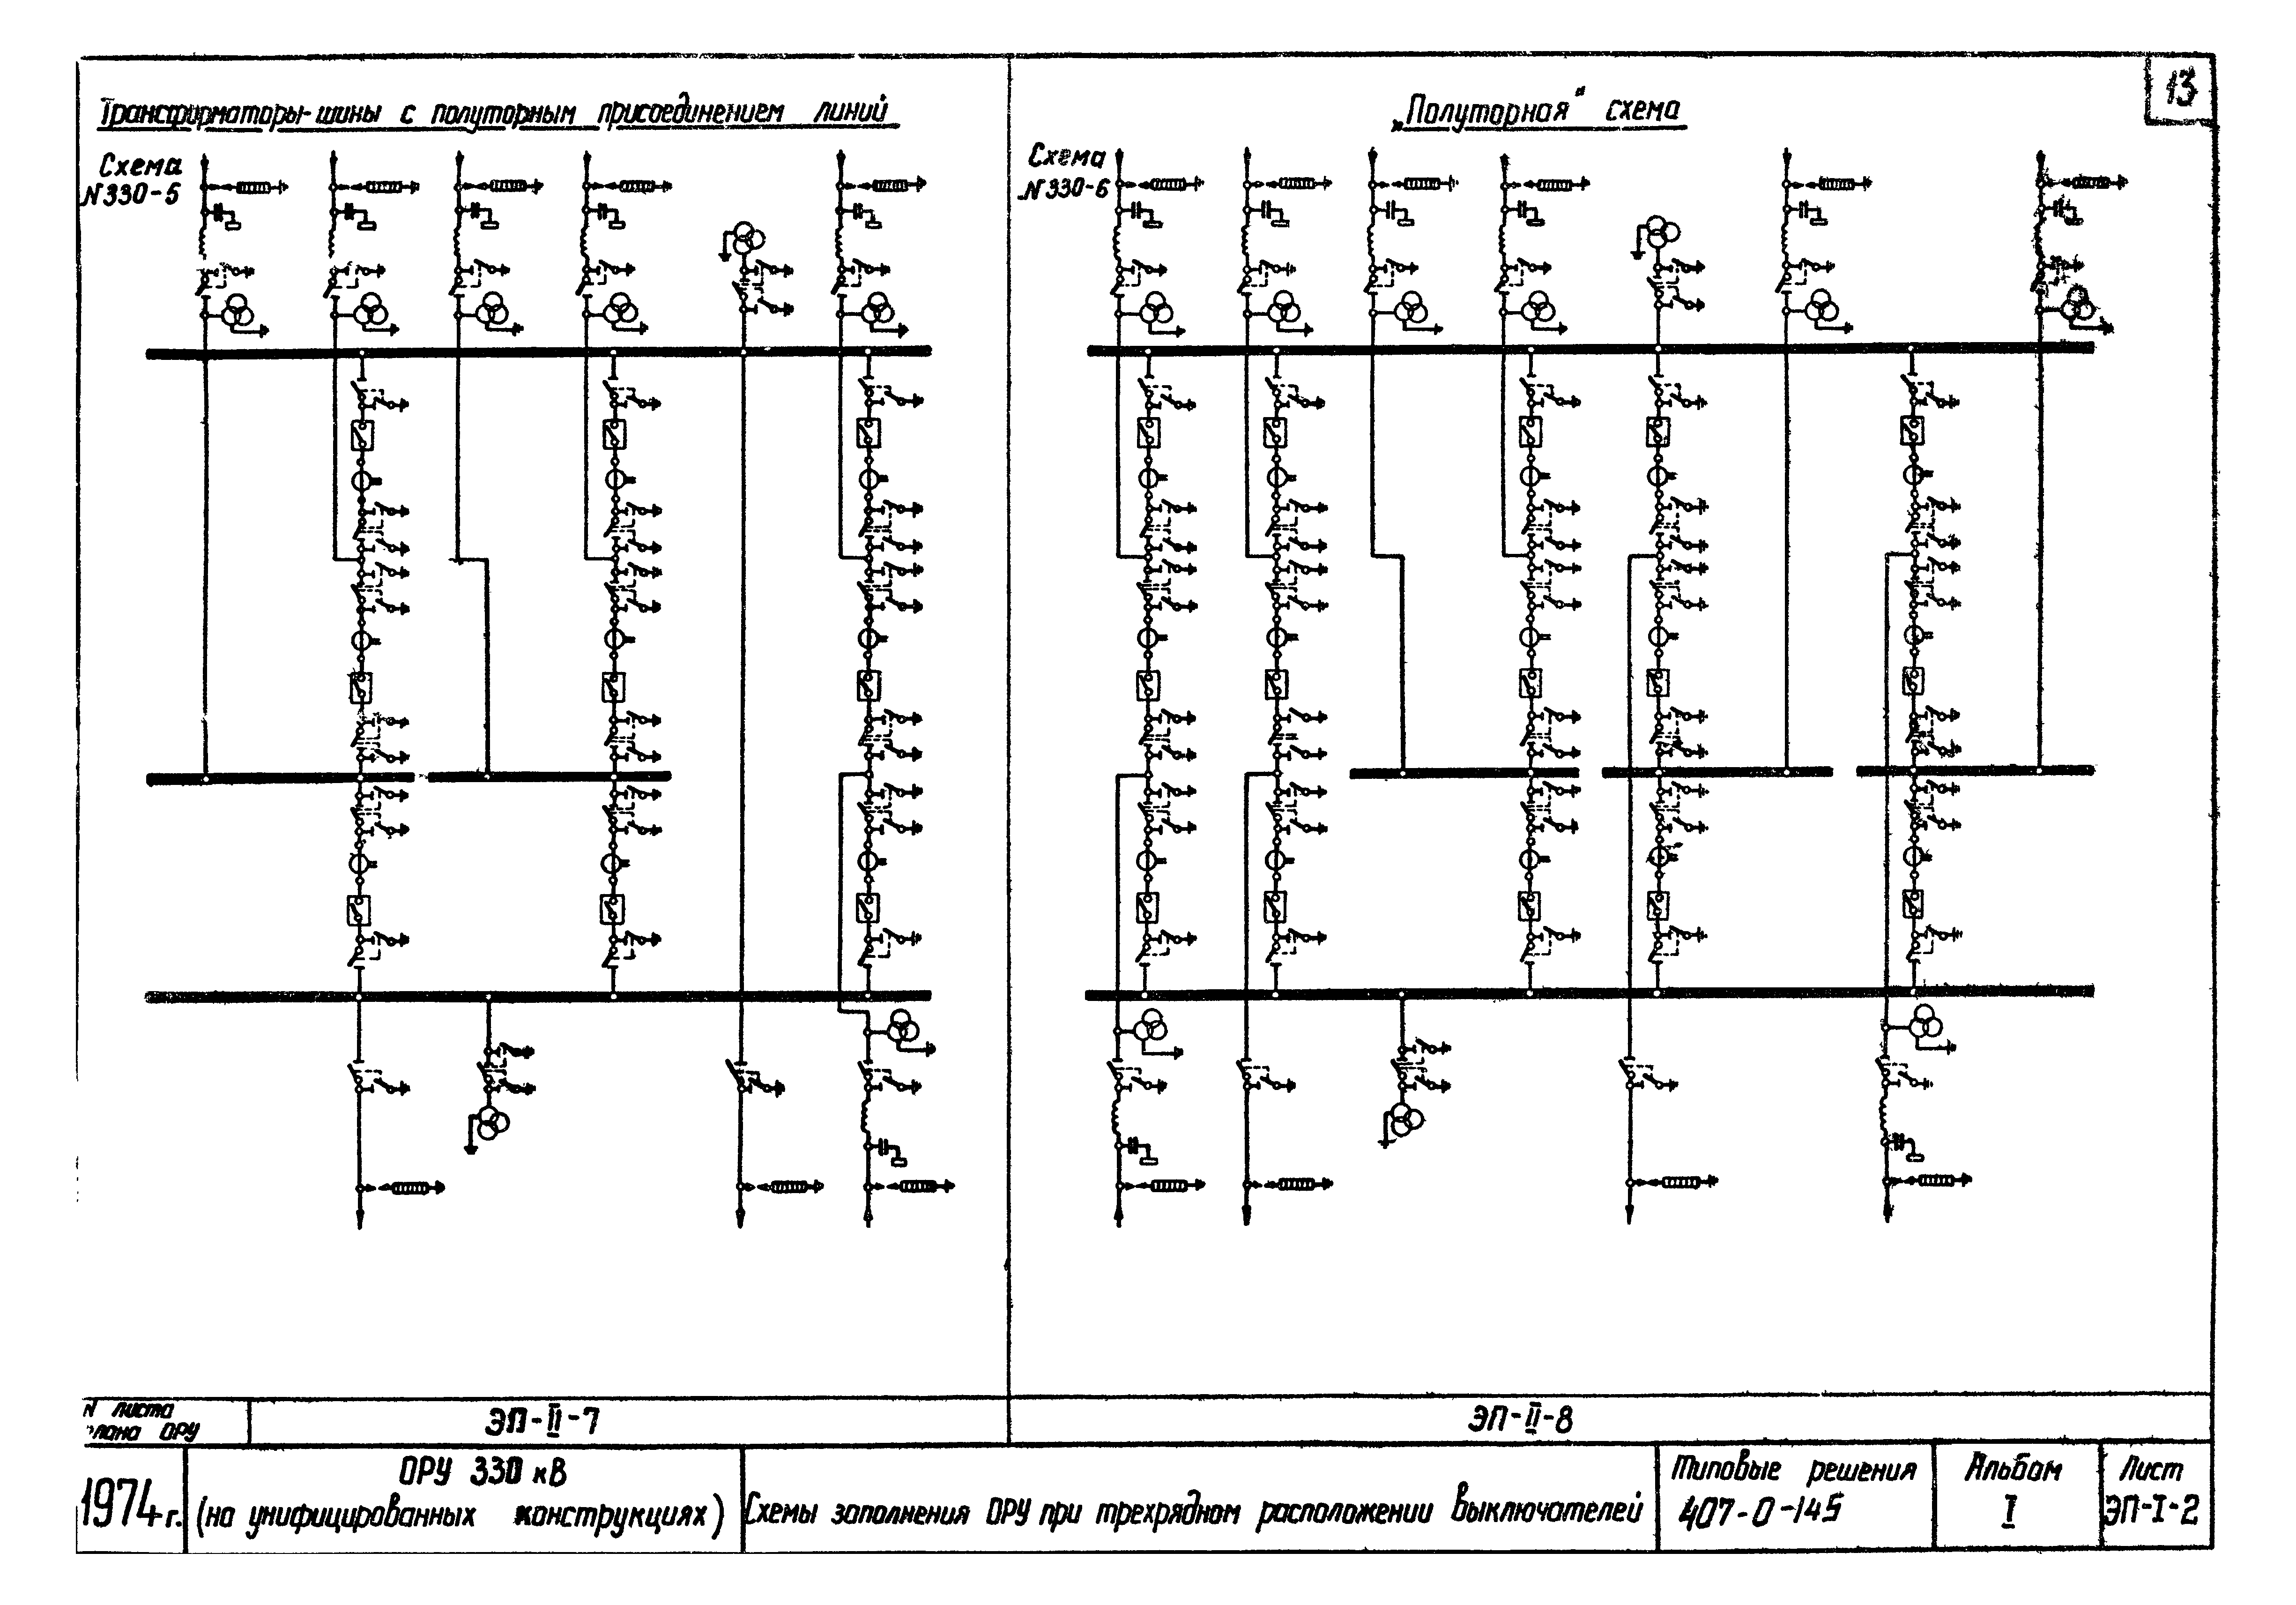 13
Трансформаторы-шины с полуторным присоединением линий
Схема
N330-5
„Полуторная" схема
Схема
N330-6
N листа
плана ОРУ
ЭП-II-7
ЭП-II-8
1974г.
ОРУ 330 кВ
(на унифицированных конструкциях)
Схемы заполнения ОРУ при трехрядном расположении выключателей
Типовые решения
407-0-145
Альбом
I
Лист
ЭП-I-2